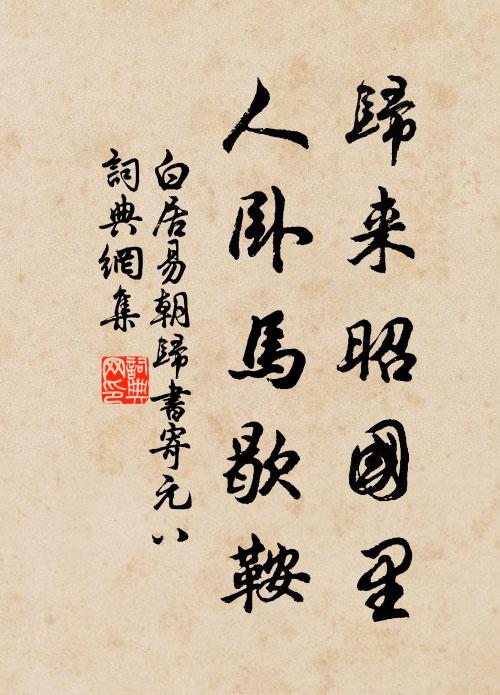 歸来昭國里
人卧馬歇鞍
白居易朝歸書寄元八
詞典網集
詞典
网印